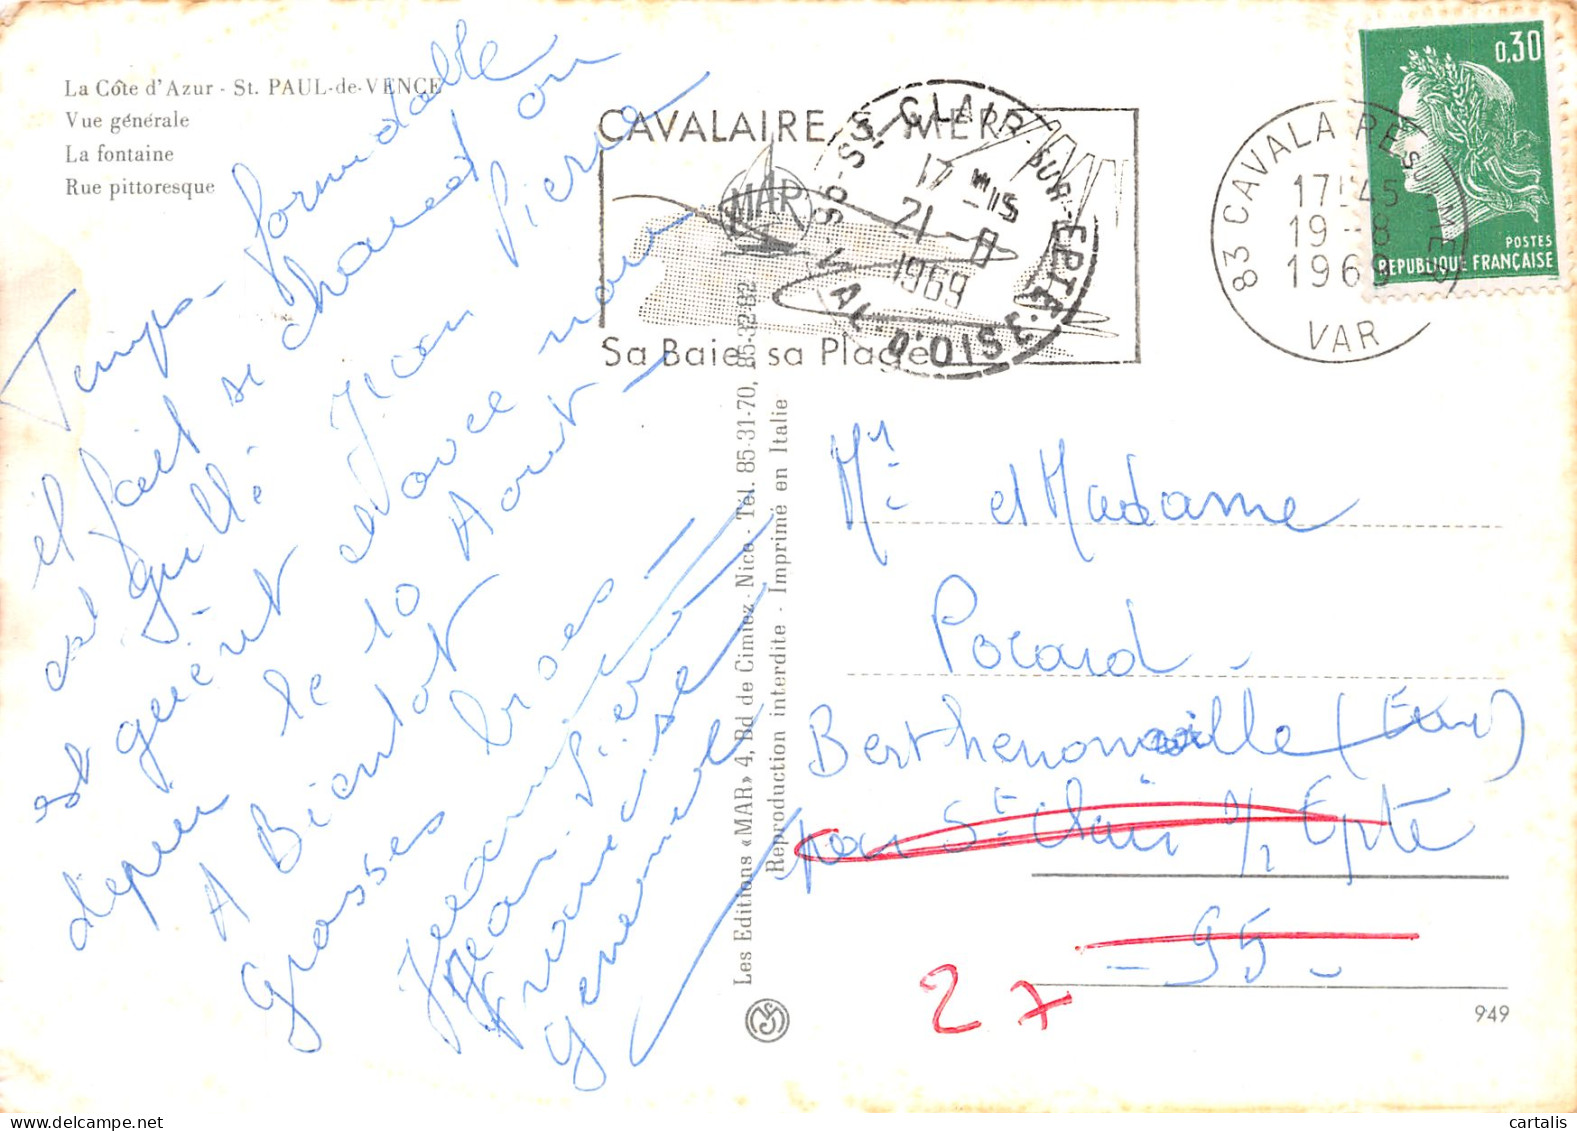 La Côte d'Azur - St. PAUL-de-VENCE
Vue générale
La fontaine
Rue pittoresque
Temps formidable
il fait se chauet on
est grillé Jean Pierre
est guérit avec nous
depuis le 10 Aout
A Bientot
Grosses bises
Jean Pierre
Françoise
CAVALAIRE S/ MER
MAR
Sa Baie, sa Plage
95-ST CLAIR-SUR-EPTE
17 H 15
21-8
1969
VAL-D'OISE
83 CAVALAIRE SUR MER
17H45
19-8
1969
VAR
0,30
POSTES
REPUBLIQUE FRANÇAISE
Les Editions «MAR» 4, Bd de Cimiez - Nice - Tél. 85-31-70, 85-32-82
Reproduction interdite - Imprimé en Italie
Mr et Madame
Pocard
Berthenonville (Eure)
par St Clair s/ Epte
95
27
949
cartalis